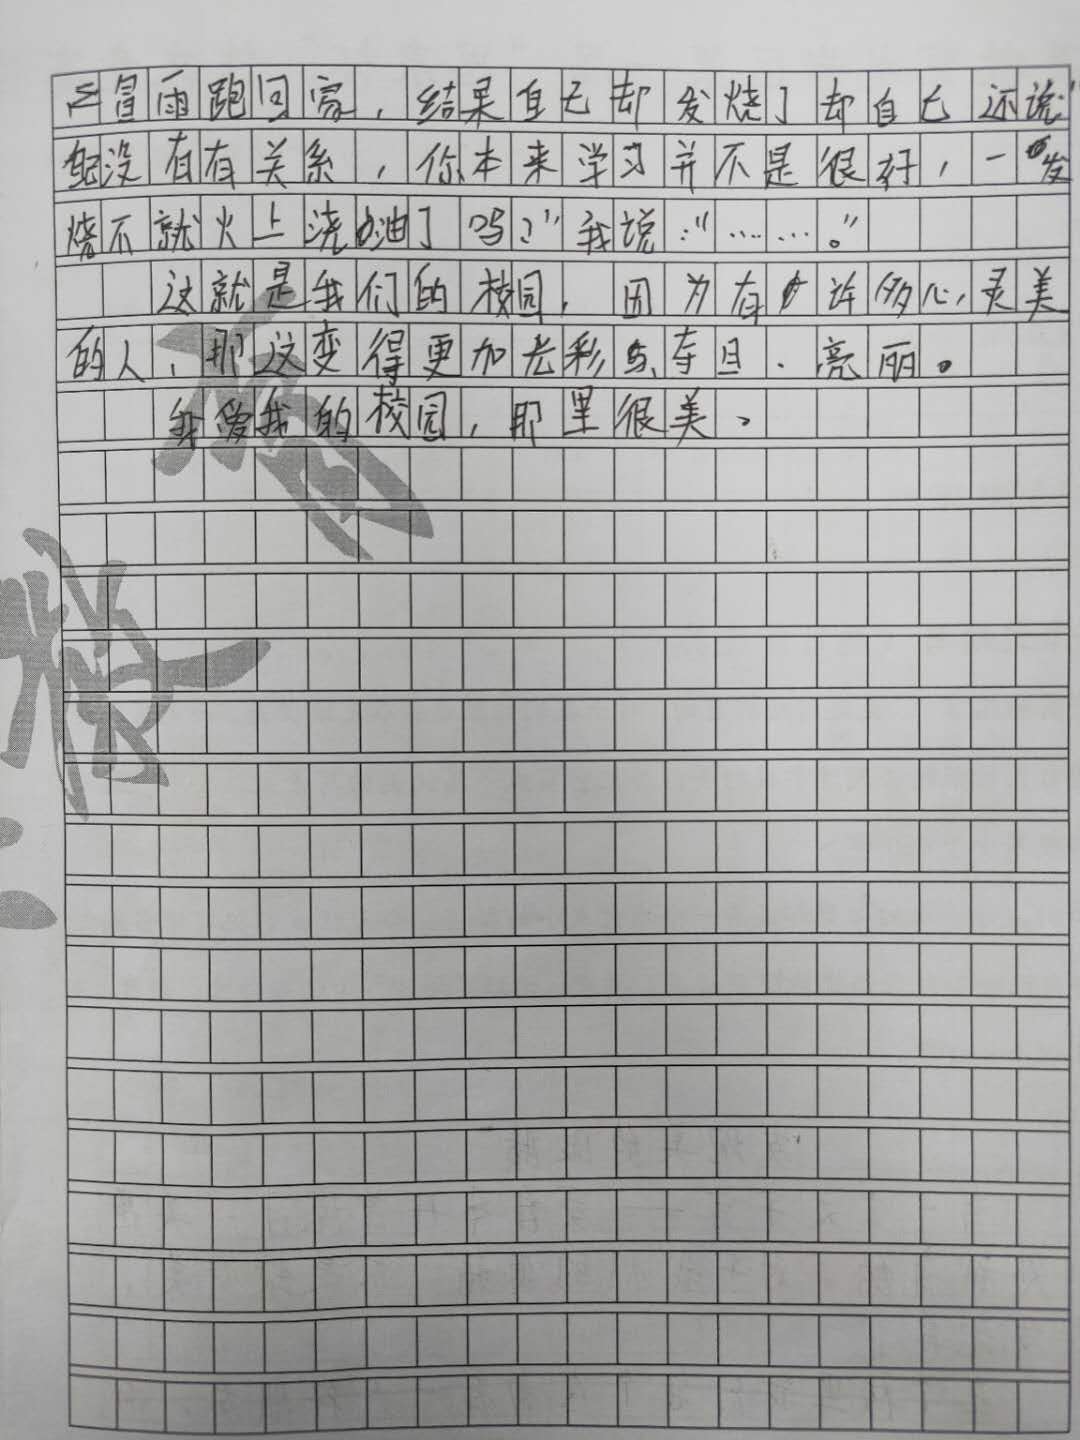 冒雨跑回家，结果自己却发烧了却自己还说“
没有有关系，你本来学习并不是很好，一发
烧不就火上浇油了吗？”我说：“……。”
这就是我们的校园，因为有许多心灵美
的人，那这变得更加光彩夺目、亮丽。
我爱我的校园，那里很美。